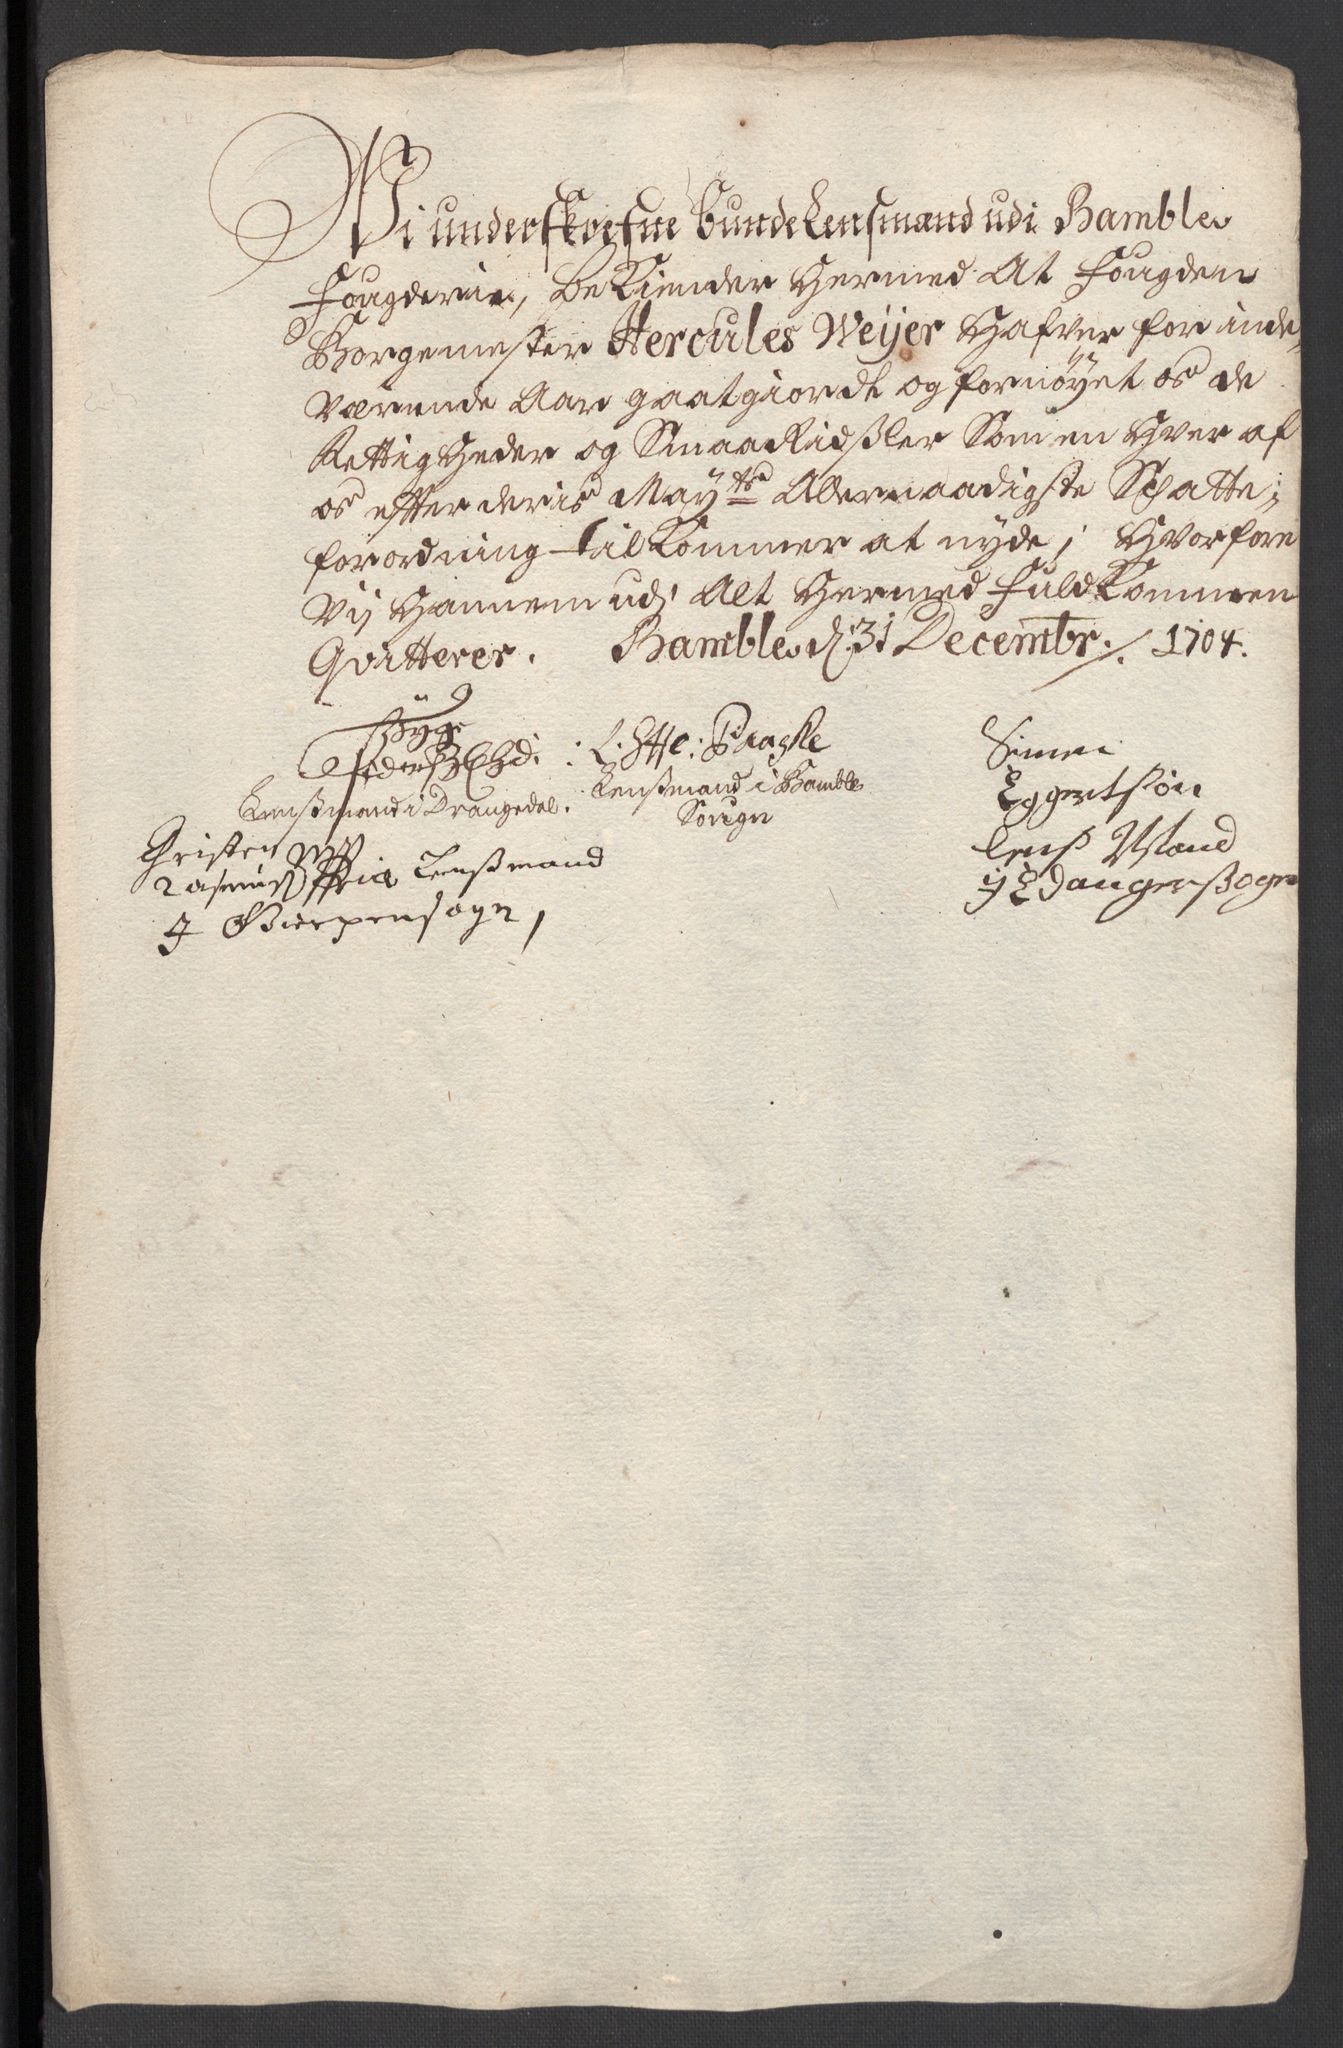 Wi underskrefne bunde Lensmænd udi Bamble
fougderie, bekiender hermed at fougden
Borgemester Hercules Weijer hafver for inde,,
værende aar gaatgiordt og fornøyet os de
Rettigheder og Smaa Ridßler som en hver af
os efter deris Mayts allernaadigste Schatte,,
forordning tilkommer at nyde; hvorfore
vij hannem udi alt hermed fuldkommen
Qvitterer. Bamble d. 31 Decembr: 1704.
Byge
Lensßmand i Drangedal.
L: Paaske
Lensßmand i Bamble
Sougn
Simen
Eggertsøn
lenß Mand
ij Eidangersßogn
Christen
Rasmus Lensßmand
J Gierpensogn,